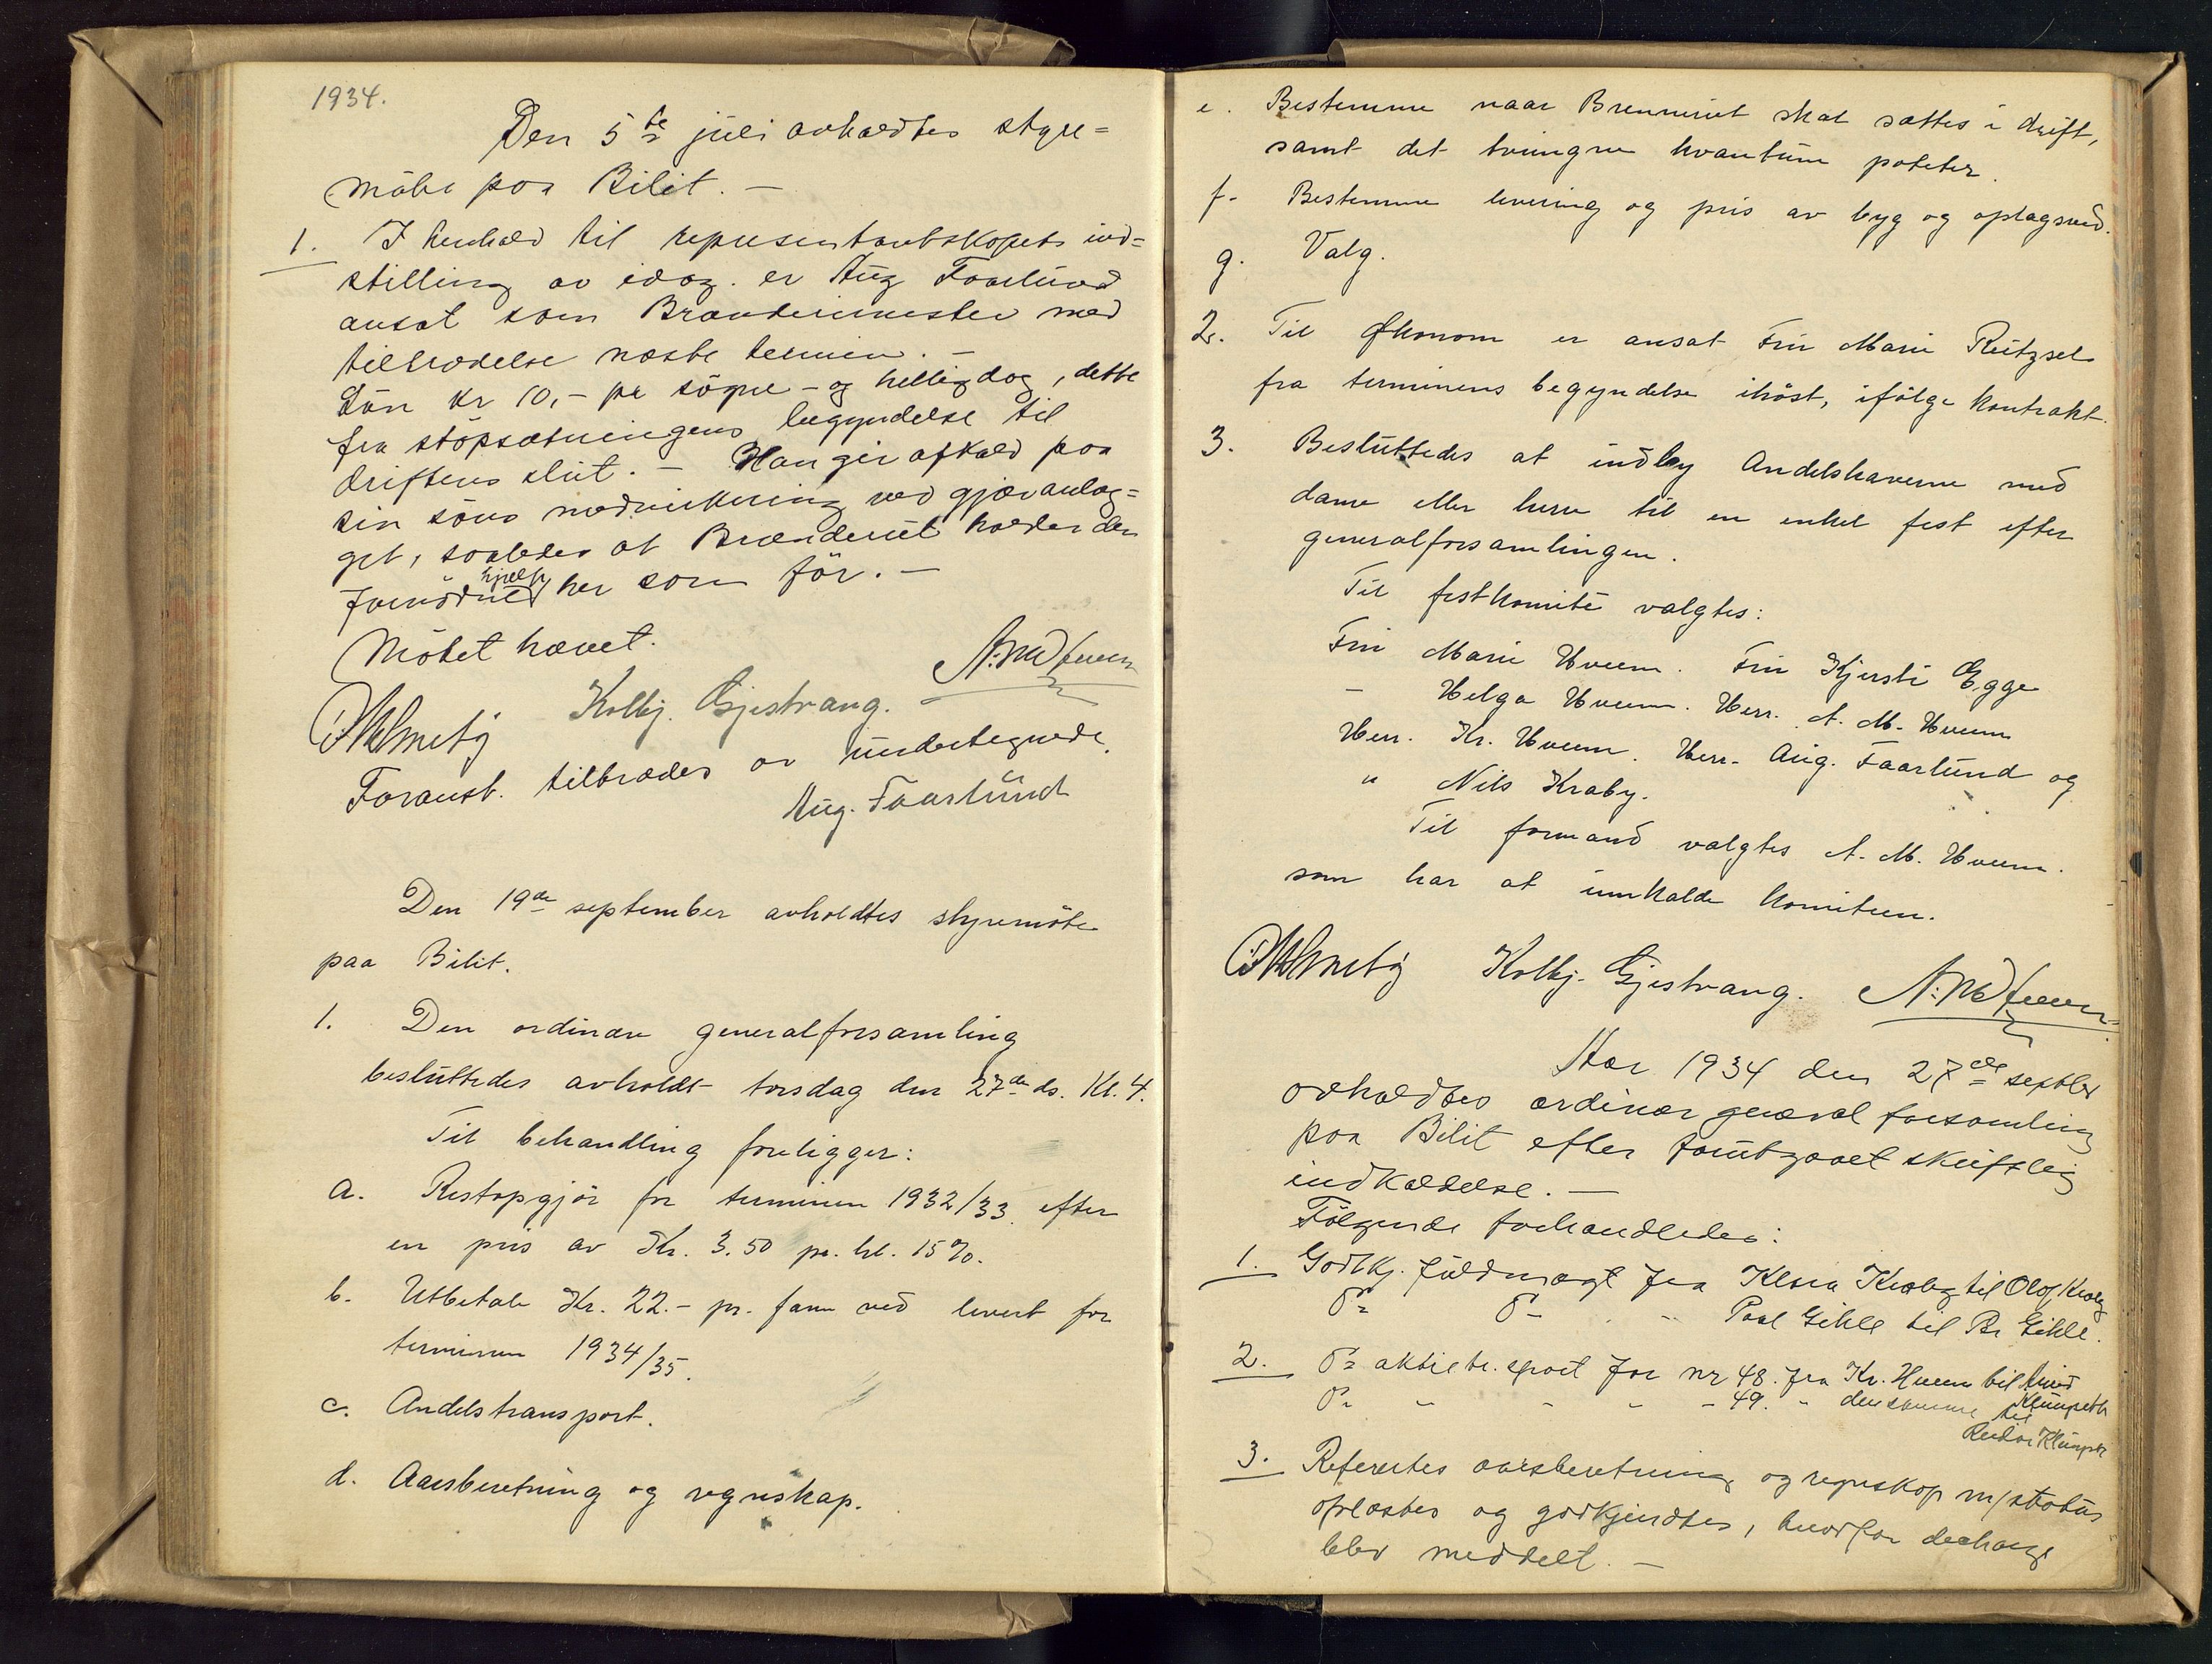 1934.
Den 5te juli avholdtes styre=
möte paa Bilit. —
1. I henhold til representantskapets ind=
stilling av idag. er Aug Faarlund
ansat som Brænderimester med
tiltrædelse næste termin. —
Lön kr 10,- pr sögne- og helligdag, dette
fra stöpsætningens begyndelse til
driftens slut. — Han gir afkald paa
sin söns medvirkning ved gjæranlæg=
get, saaledes at Brænderiet holder den
fornödne hjelp her som för. —
Mötet hævet.
Kolbj. Gjestvang.
Foranst. tiltrædes av undertegnede.
Aug. Faarlund
Den 19de september avholdtes styremöte
paa Bilit.
1. Den ordinære generalforsamling
besluttedes avholdt torsdag den 27de ds. Kl. 4.
Til behandling foreligger:
a. Restopgjör for terminen 1932/33. efter
en pris av Kr. 3.50 pr. hl. 15%.
b. Utbetale Kr. 22.- pr. favn ved levert for
terminen 1934/35.
c. Andelstransport.
d. Aarsberetning og regnskap.
e. Bestemme naar Brenneriet skal sættes i drift,
samt det tvungne kvantum poteter.
f. Bestemme levering og pris av byg og oplagsved.
g. Valg.
2. Til Økonom er ansat Frk Marie
fra terminens begyndelse ihöst, ifölge kontrakt.
3. Besluttedes at indby Andelshaverne med
dame eller herre til en enkel fest efter
generalforsamlingen.
Til festkomité valgtes:
Frk Marie Hveem. Frk Kjersti Egge
— Helga Hveem. Herr. A. M. Hveem
Herr. Kr. Hveem. Herr. Aug. Faarlund og
" Nils Kraby.
Til formand valgtes A. M. Hveem.
som har at innkalde komiteen.
Kolbj. Gjestvang.
Aar 1934 den 27de septbr
avholdtes ordinær general forsamling
paa Bilit efter forutgaaet skriftlig
indkaldelse. —
Fölgende forhandledes:
1. Godkj. fuldmagt fra Klara Kraby til Olaf Kraby
Do Do - Paal Gihle til Br Gihle.
2. Do aktietr.sport for nr 48. fra Kr. Hveem til
Do - - - - 49. - densamme til
3. Referertes aarsberetning og regnskap m/status
oplæstes og godkjendtes, hvorfor decharge
blev meddelt. —